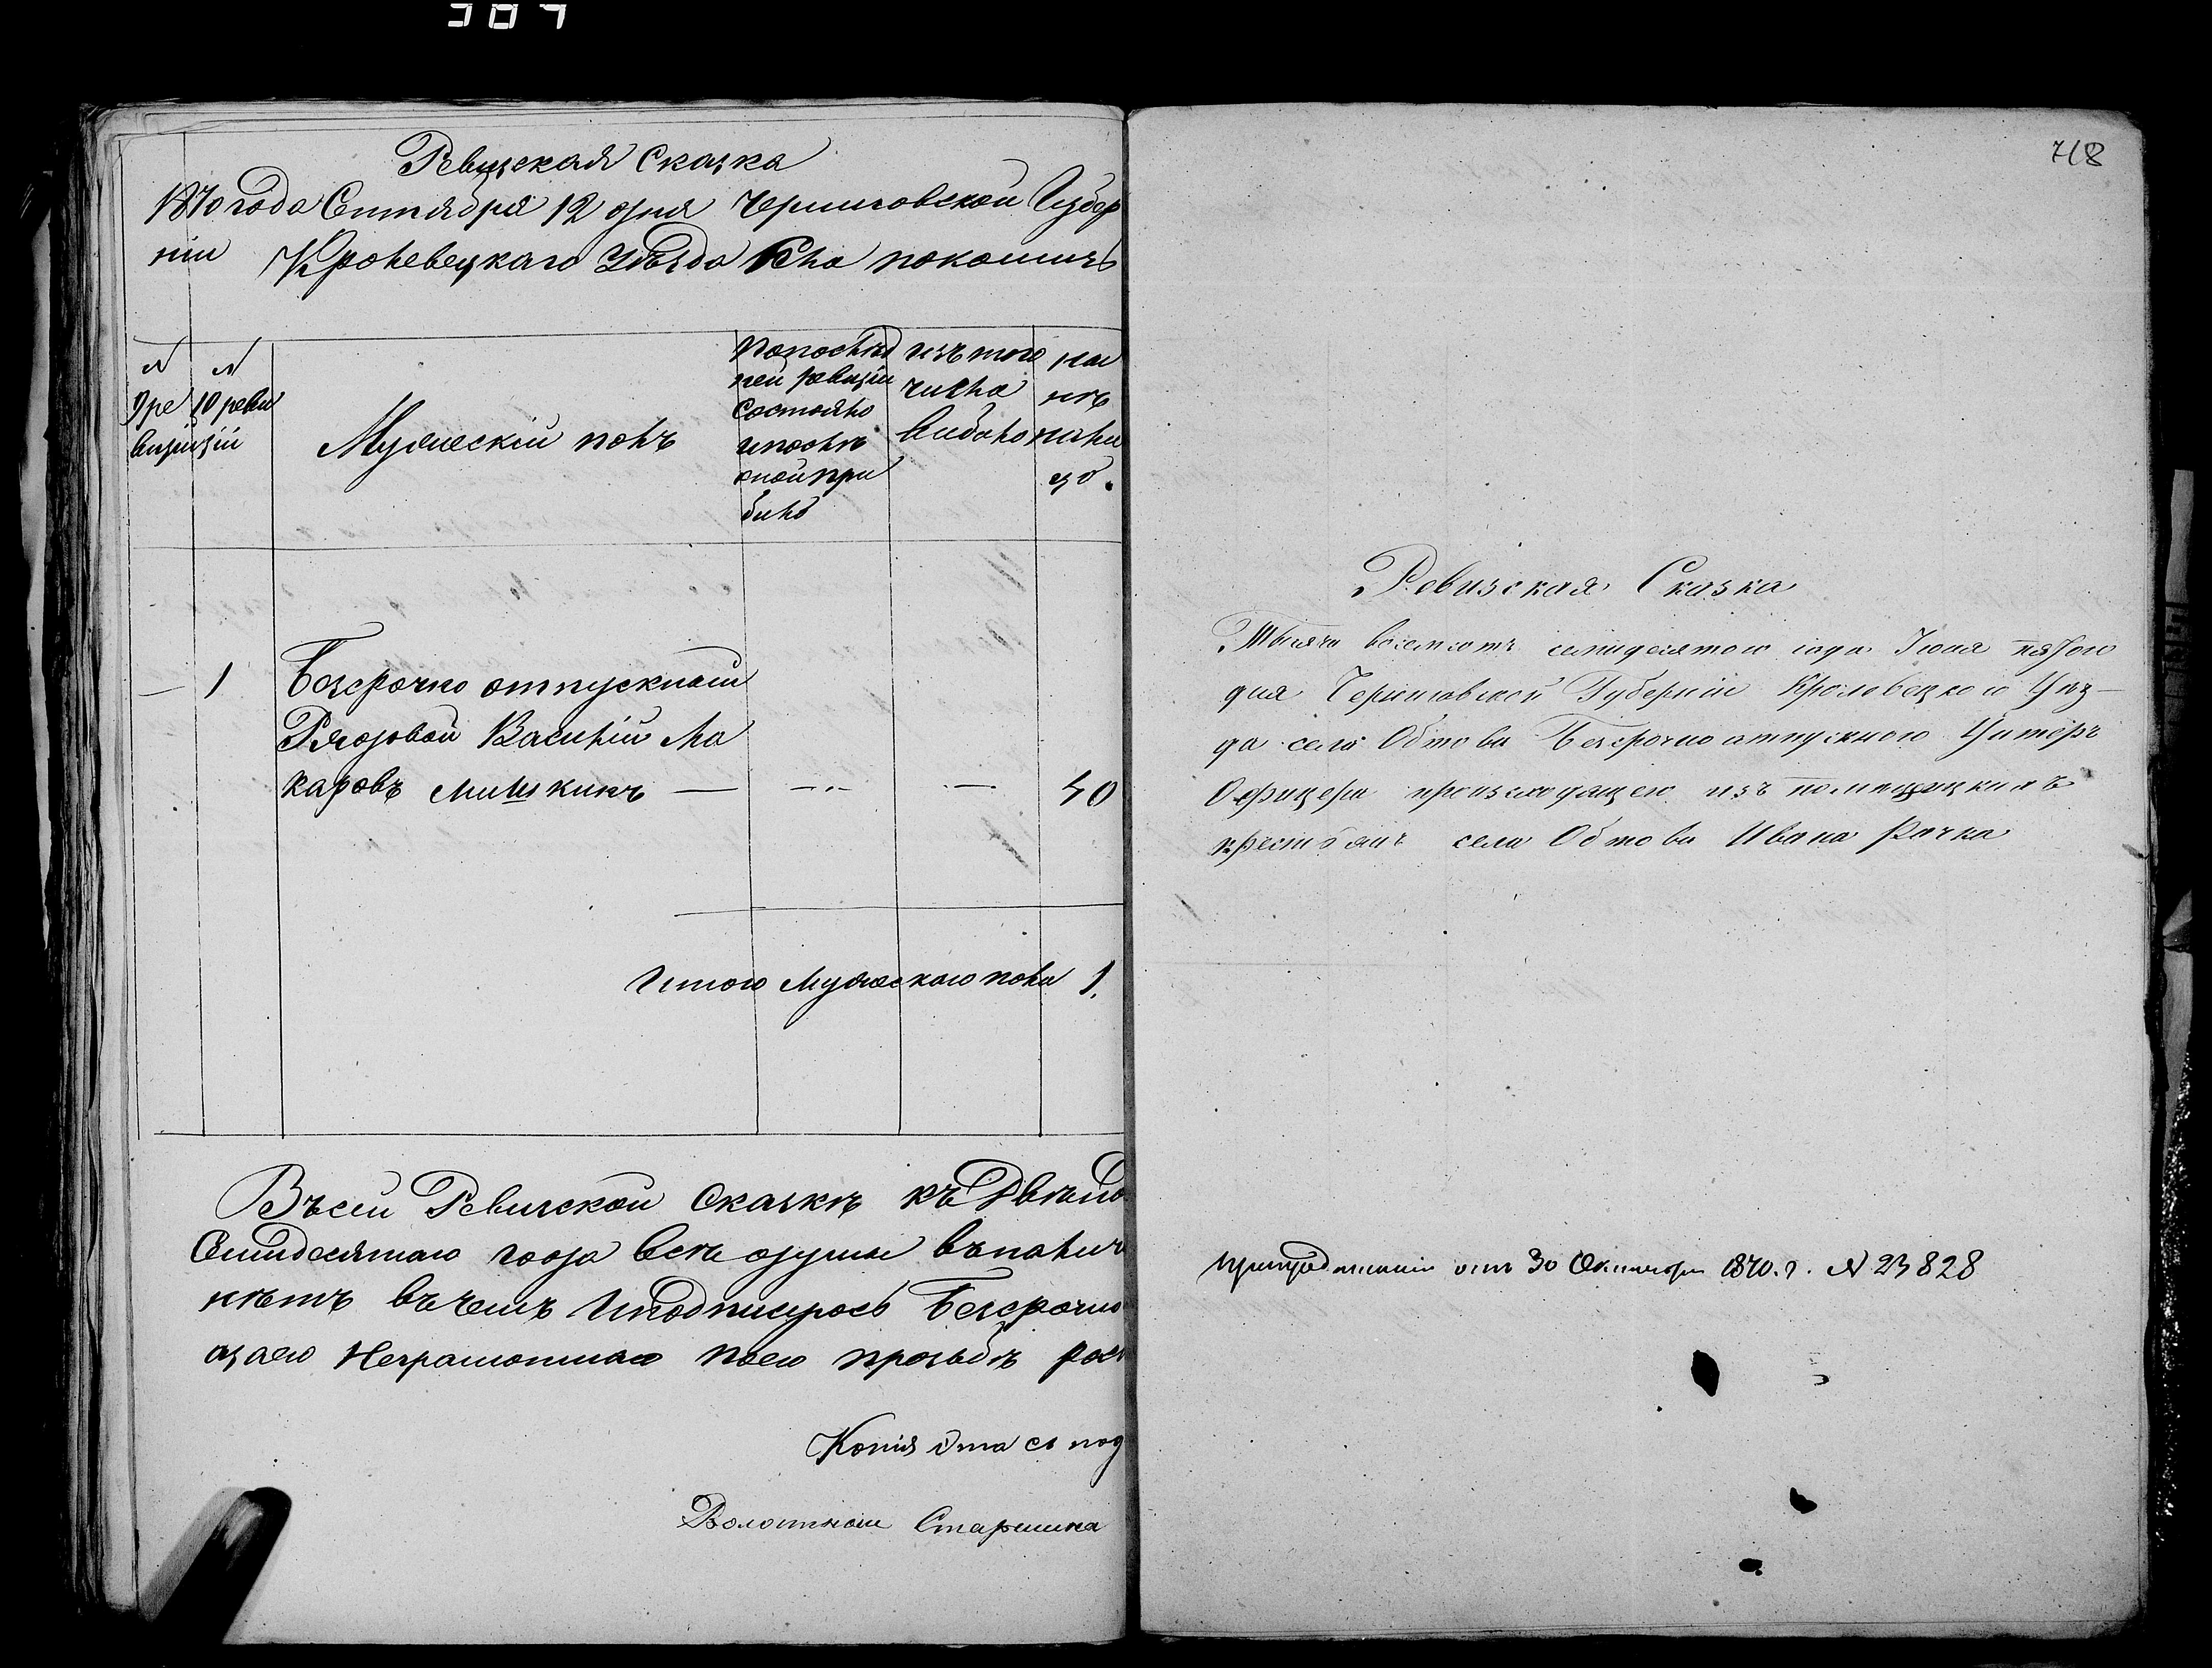 307
Ревизская Сказка
1870 года Сентября 12 дня Черниговской Губер
ніи Кролевецкаго Уѣзда Села покошичь
№ 9 ре визіи
№ 10 реви зіи
Мужескій полъ
По послѣд ней ревизіи состояло и послѣ оной при было
изъ того числа выбыло
на лицо
— 1 Безсрочно отпускной
Рядовой Василій Ма
каровъ Мишкинъ — — — 40
Итого Мужескаго пола 1.
Въ сей Ревизской Сказкѣ
Семидесятаго года всѣ души
нѣтъ въ чемъ и подписуюсь Безсрочно
Неграмотнаго по его прозьбѣ рос
Копія эта съ под
Волостной Старшина
718
Ревизская Сказка
Тысяча восемсотъ семидесятого года Іюня пятого
дня Черниговской Губерніи Кролевецкого Уѣз-
да села Обтова Безсрочно отпускного Унтеръ
Офицера происходящего изъ помещицкихъ
крестьянъ села Обтова Ивана Рачка
от 30 Октября 1870. г. № 23828